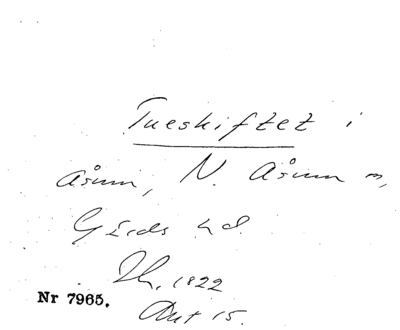 Tueskiftet i
Åsum, N. Åsum sn,
Gärds hd.
Sk. 1822
Nr 7965.
Akt 15.